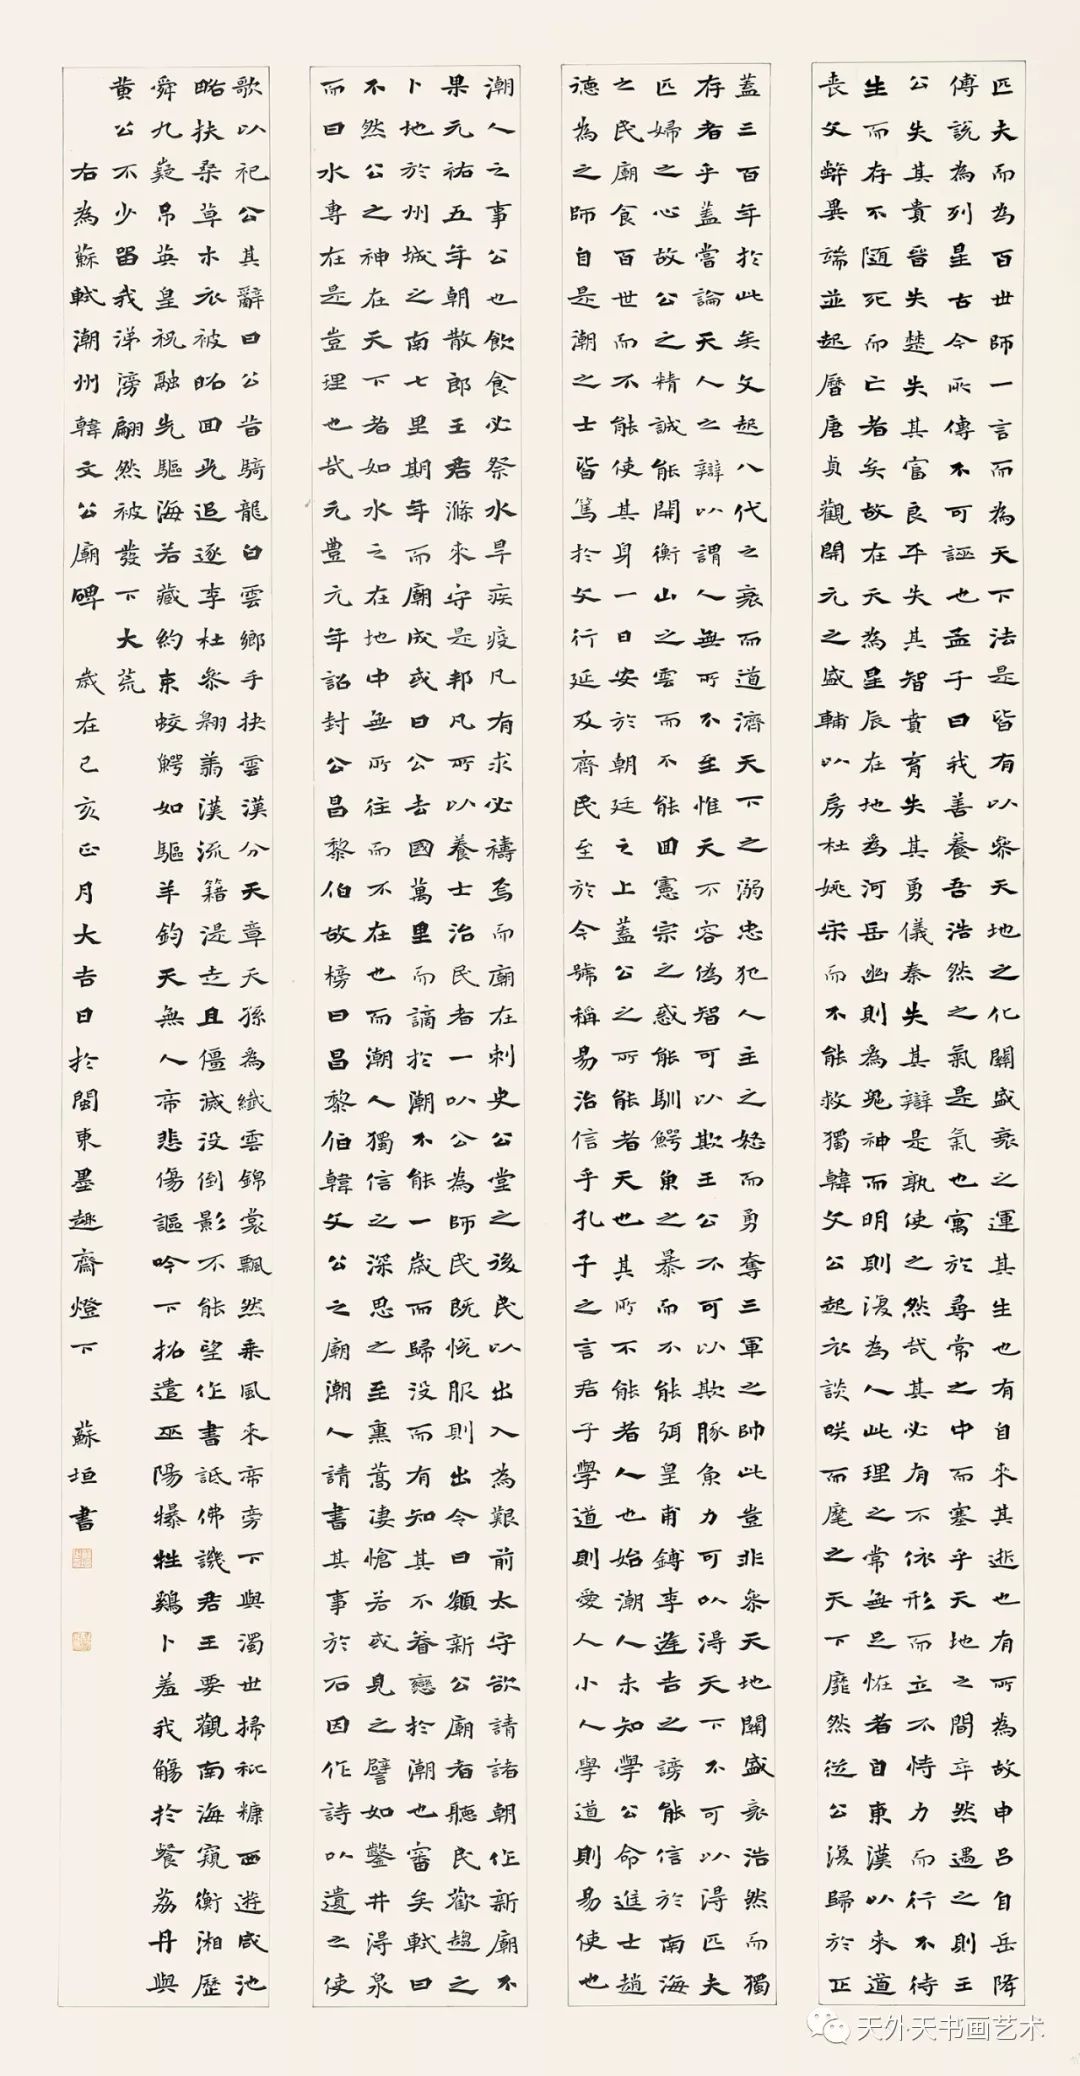 匹夫而為百世師一言而為天下法是皆有以參天地之化關盛衰之運其生也有自來其逝也有所為故申呂自岳降
傅說為列星古今所傳不可誣也孟子曰我善養吾浩然之氣是氣也寓於尋常之中而塞乎天地之間卒然遇之則王
公失其貴晉失楚失其富良平失其智賁育失其勇儀秦失其辯是孰使之然哉其必有不依形而立不恃力而行不待
生而存不隨死而亡者矣故在天為星辰在地為河岳幽則為鬼神而明則復為人此理之常無足恠者自東漢以來道
喪文弊異端並起曆唐貞觀開元之盛輔以房杜姚宋而不能救獨韓文公起衣談咲而麾之天下靡然從公復歸於正
蓋三百年於此矣文起八代之衰而道濟天下之溺忠犯人主之怒而勇奪三軍之帥此豈非參天地關盛衰浩然而獨
存者乎蓋嘗論天人之辯以謂人無所不至惟天不容偽智可以欺王公不可以欺豚魚力可以得天下不可以得匹夫
匹婦之心故公之精誠能開衡山之雲而不能回憲宗之惑能馴鱷魚之暴而不能弭皇甫鎛李逢吉之謗能信於南海
之民廟食百世而不能使其身一日安於朝廷之上蓋公之所能者天也其所不能者人也始潮人未知學公命進士趙
德為之師自是潮之士皆篤於文行延及齊民至於今號稱易治信乎孔子之言君子學道則愛人小人學道則易使也
潮人之事公也飲食必祭水旱疾疫凡有求必禱焉而廟在刺史公堂之後民以出入為艱前太守欲請諸朝作新廟不
果元祐五年朝散郎王君滌來守是邦凡所以養士治民者一以公為師民既悅服則出令曰願新公廟者聽民歡趨之
卜地於州城之南七里期年而廟成或曰公去國萬里而謫於潮不能一歲而歸沒而有知其不眷戀於潮也審矣軾曰
不然公之神在天下者如水之在地中無所往而不在也而潮人獨信之深思之至熏蒿淒愴若或見之譬如鑿井得泉
而曰水專在是豈理也哉元豐元年詔封公昌黎伯故榜曰昌黎伯韓文公之廟潮人請書其事於石因作詩以遺之使
歌以祀公其辭曰公昔騎龍白雲鄉手抉雲漢分天章天孫為織雲錦裳飄然乘風來帝旁下與濁世掃秕糠西遊咸池
略扶桑草木衣被昭回光追逐李杜參翱翔漢流籍湜走且僵滅沒倒影不能望作書詆佛譏君王要觀南海窺衡湘歷
舜九嶷吊英皇祝融先驅海若藏約束蛟鱷如驅羊鈞天無人帝悲傷謳吟下招遣巫陽犦牲雞卜羞我觴於餐荔丹與
黃公不少留我涕滂翩然被發下大荒
右為蘇軾潮州韓文公廟碑 歲在己亥正月大吉日於閩東墨趣齋燈下 蘇垣書
天外天书画艺术